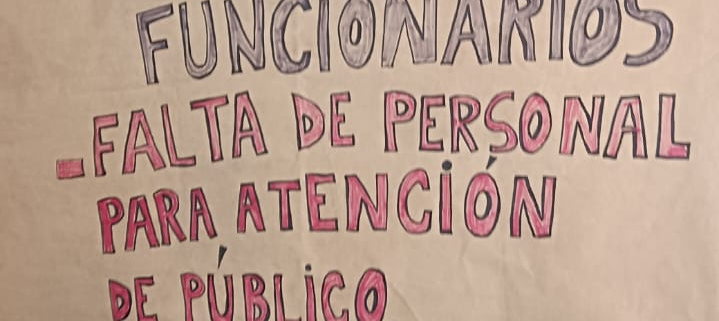 FUNCIONARIOS
-FALTA DE PERSONAL
PARA ATENCIÓN
DE PÚBLICO